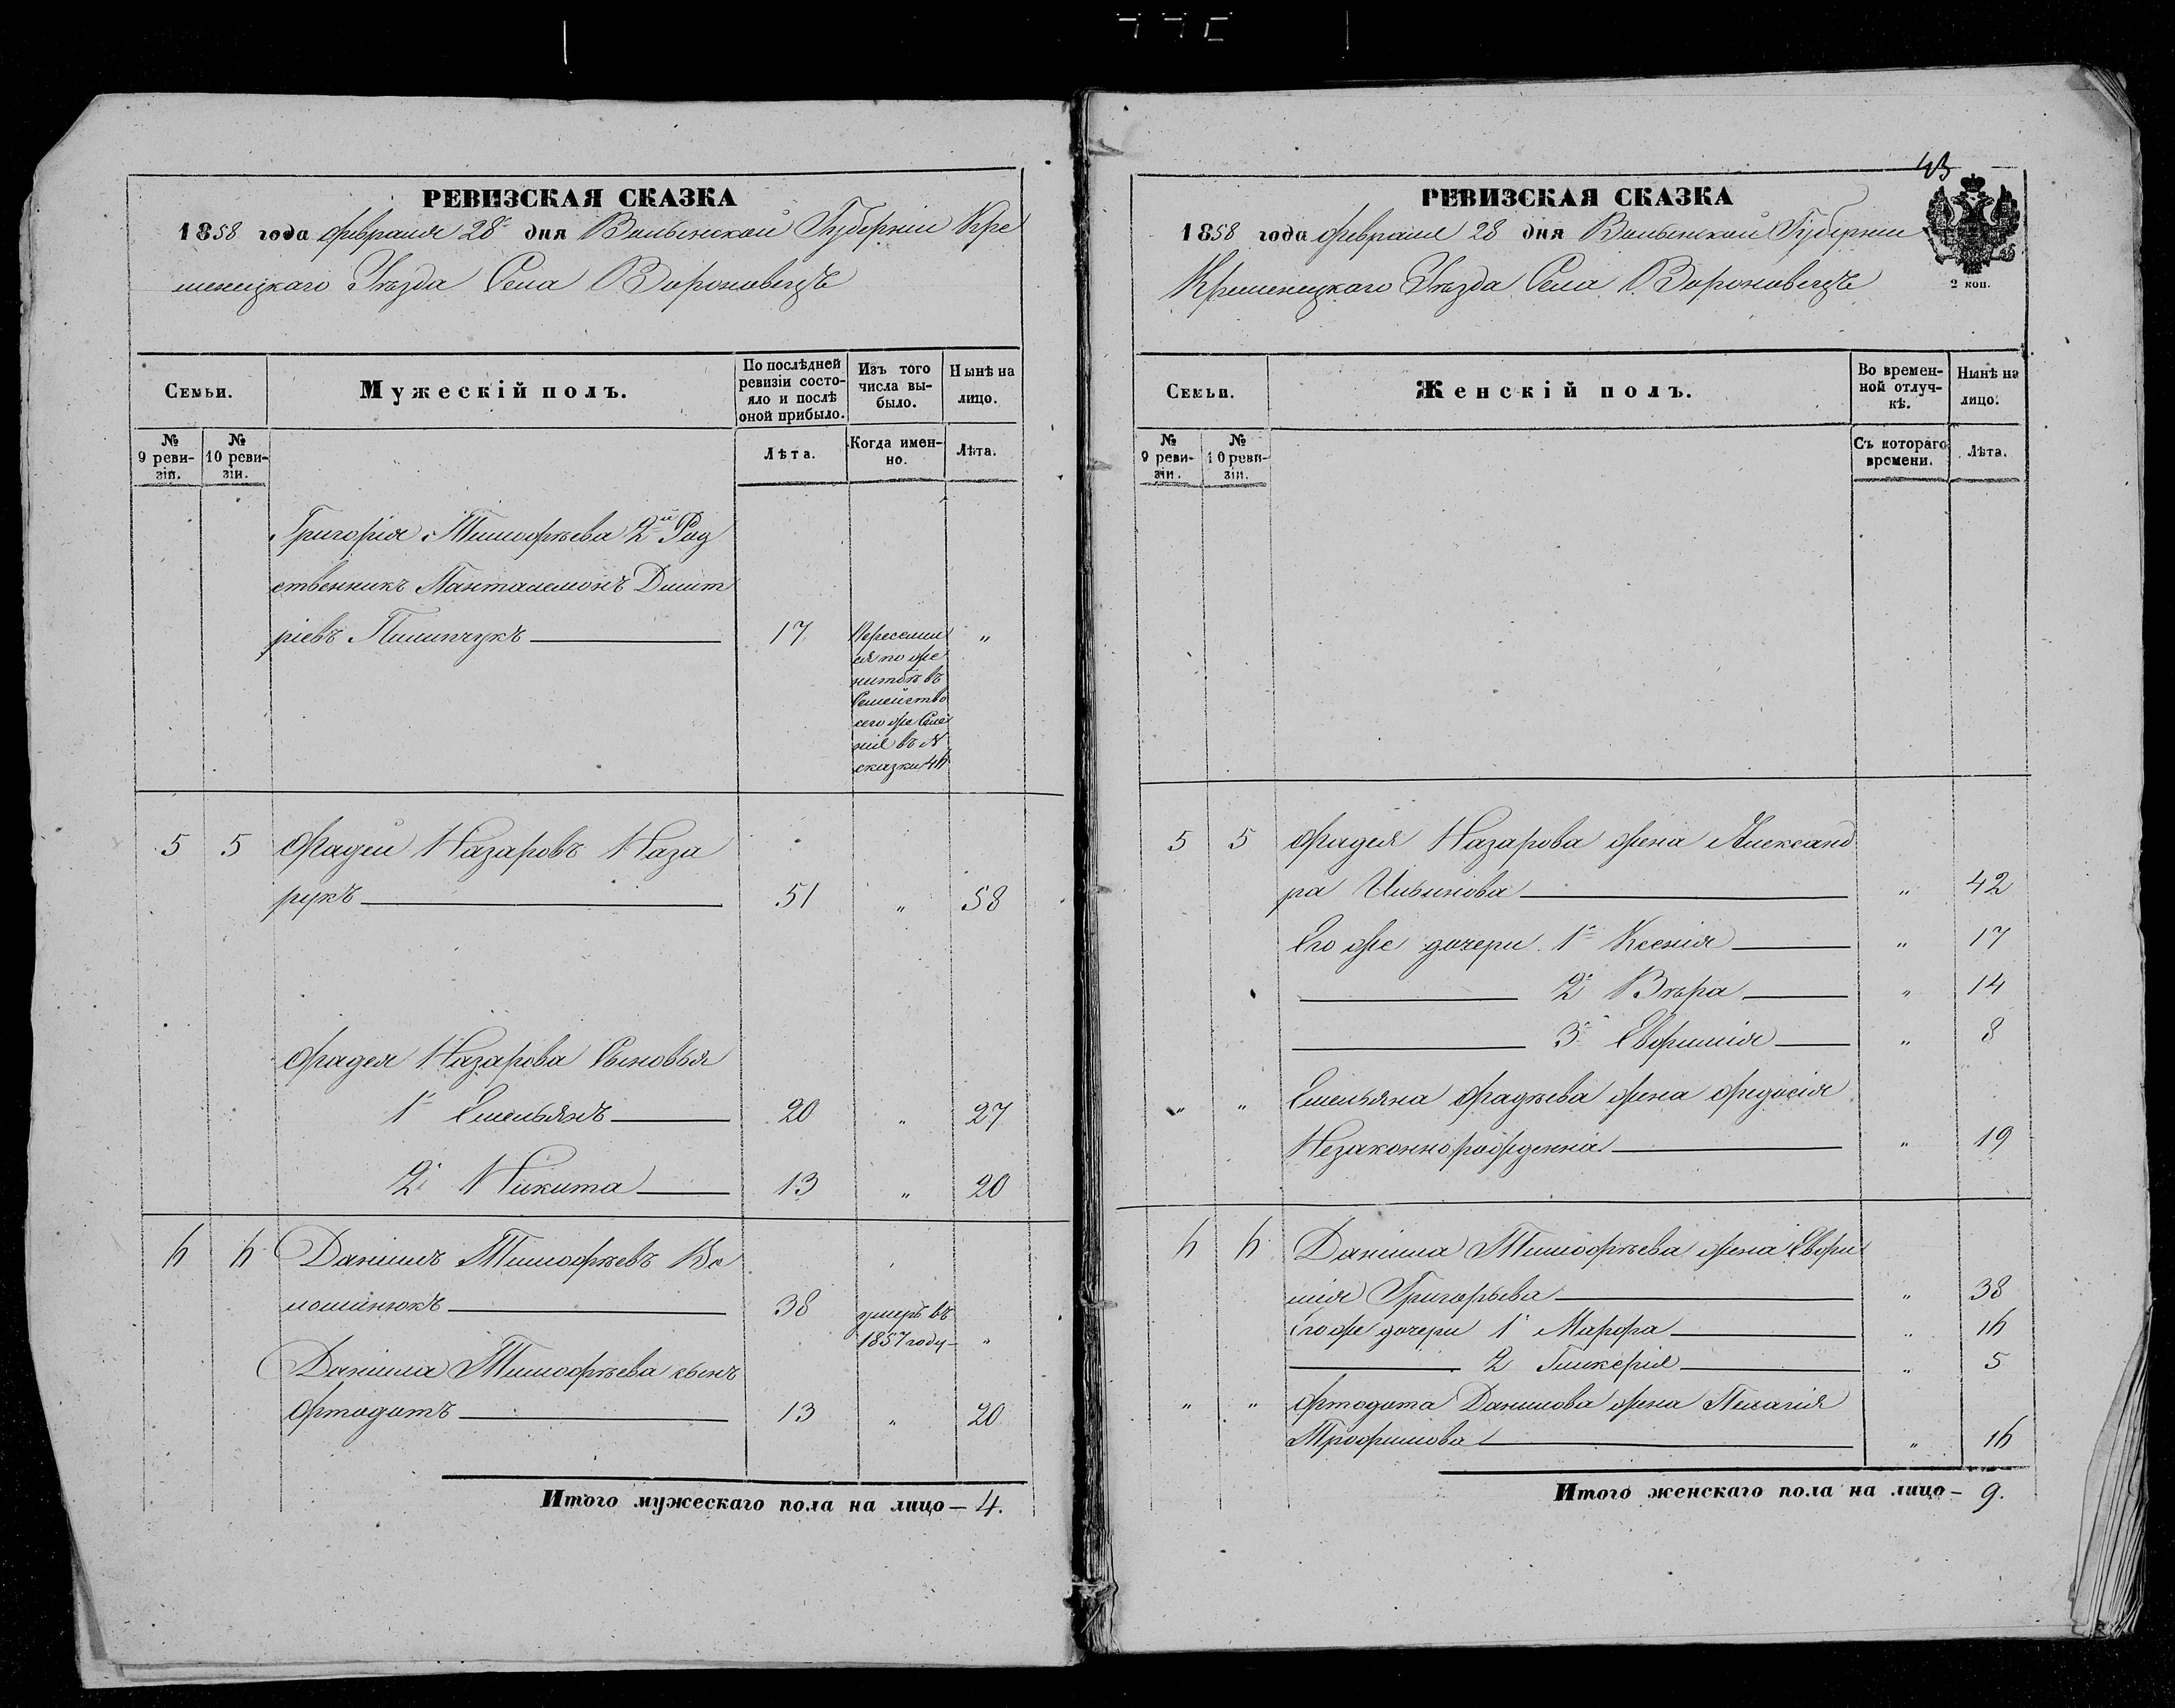 РЕВИЗСКАЯ СКАЗКА
1858 года февраля 28 дня Волынской Губернiи Кре
менецкаго Уѣзда Села Вороновецъ
Семьи.
Мужескiй полъ.
По послѣдней ревизiи состо-
яло и послѣ оной прибыло.
Изъ того числа вы-
было.
Нынѣ на лицо.
№ 9 реви-
зiи.
№ 10 реви-
зiи.
Лѣта.
Когда имен-
но.
Лѣта.
Григорiя Тимофѣева 2й Род
ственникъ Пантелемонъ Дмит
рiевъ Пилипчукъ 17 „
Переселил
ся по же
нитбѣ въ
Семейство
сего же Селе
нiя въ №
сказки 46
5 5 Фадей Назаровъ Наза
рукъ 51 „ 58
Фадея Назарова Сыновья
1й Емельянъ 20 „ 27
2й Никита 13 „ 20
6 6 Данiилъ Тимофѣевъ
38 умеръ въ
1857 году „
Данiила Тимофѣева сынъ
Фтодотъ 13 „ 20
Итого мужескаго пола на лицо — 4.
43
РЕВИЗСКАЯ СКАЗКА
1858 года февраля 28 дня Волынской Губернiи
Кременецкаго Уѣзда Села Вороновецъ
2 коп.
Семьи.
Женскiй полъ.
Во времен-
ной отлуч-
кѣ.
Нынѣ на лицо.
№ 9 реви-
зiи.
№ 10 реви-
зiи.
Съ котораго времени.
Лѣта.
5 5 Фадея Назарова жена Александ
ра Ильинова „ 42
Его же дочери 1я Ксенiя „ 17
2я Вѣра „ 14
3я Евфимiя „ 8
„ „ Емельяна Фадѣева жена Федосiя
Незаконнорожденная „ 19
6 6 Данiила Тимофѣева жена Евфи
мiя Григорьева „ 38
Его же дочери 1я Марфа „ 16
2 Гликерiя „ 5
„ „ Фтодота Данилова жена Пелагiя
Трофимова „ 16
Итого женскаго пола на лицо — 9.